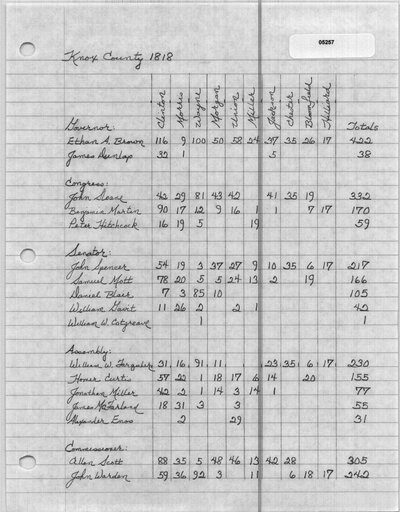 05257
Knox County 1818
Clinton Morris Wayne Morgan Union Miller Jackson Chester Bloomfield Hilliard Totals
Governor:
Ethan A. Brown 116 9 100 50 58 24 37 35 26 17 422
James Dunlap 32 1 5 38
Congress:
John Sloane 42 29 81 43 42 41 35 19 332
Benjamin Martin 90 17 12 9 16 1 1 7 17 170
Peter Hitchcock 16 19 5 19 59
Senator:
John Spencer 54 19 3 37 27 9 10 35 6 17 217
Samuel Mott 78 20 5 5 24 13 2 19 166
Daniel Blair 7 3 85 10 105
William Gavit 11 26 2 2 1 42
William W. Cotgreave 1 1
Assembly:
William W. Farquhar 31 16 91 11 23 35 6 17 230
Homer Curtis 57 22 1 18 17 6 14 20 155
Jonathan Miller 42 2 1 14 3 14 1 77
James McFarland 18 31 3 3 55
Alexander Enos 2 29 31
Commissioner:
Allen Scott 88 35 5 48 46 13 42 28 305
John Warden 59 36 92 3 11 6 18 17 242